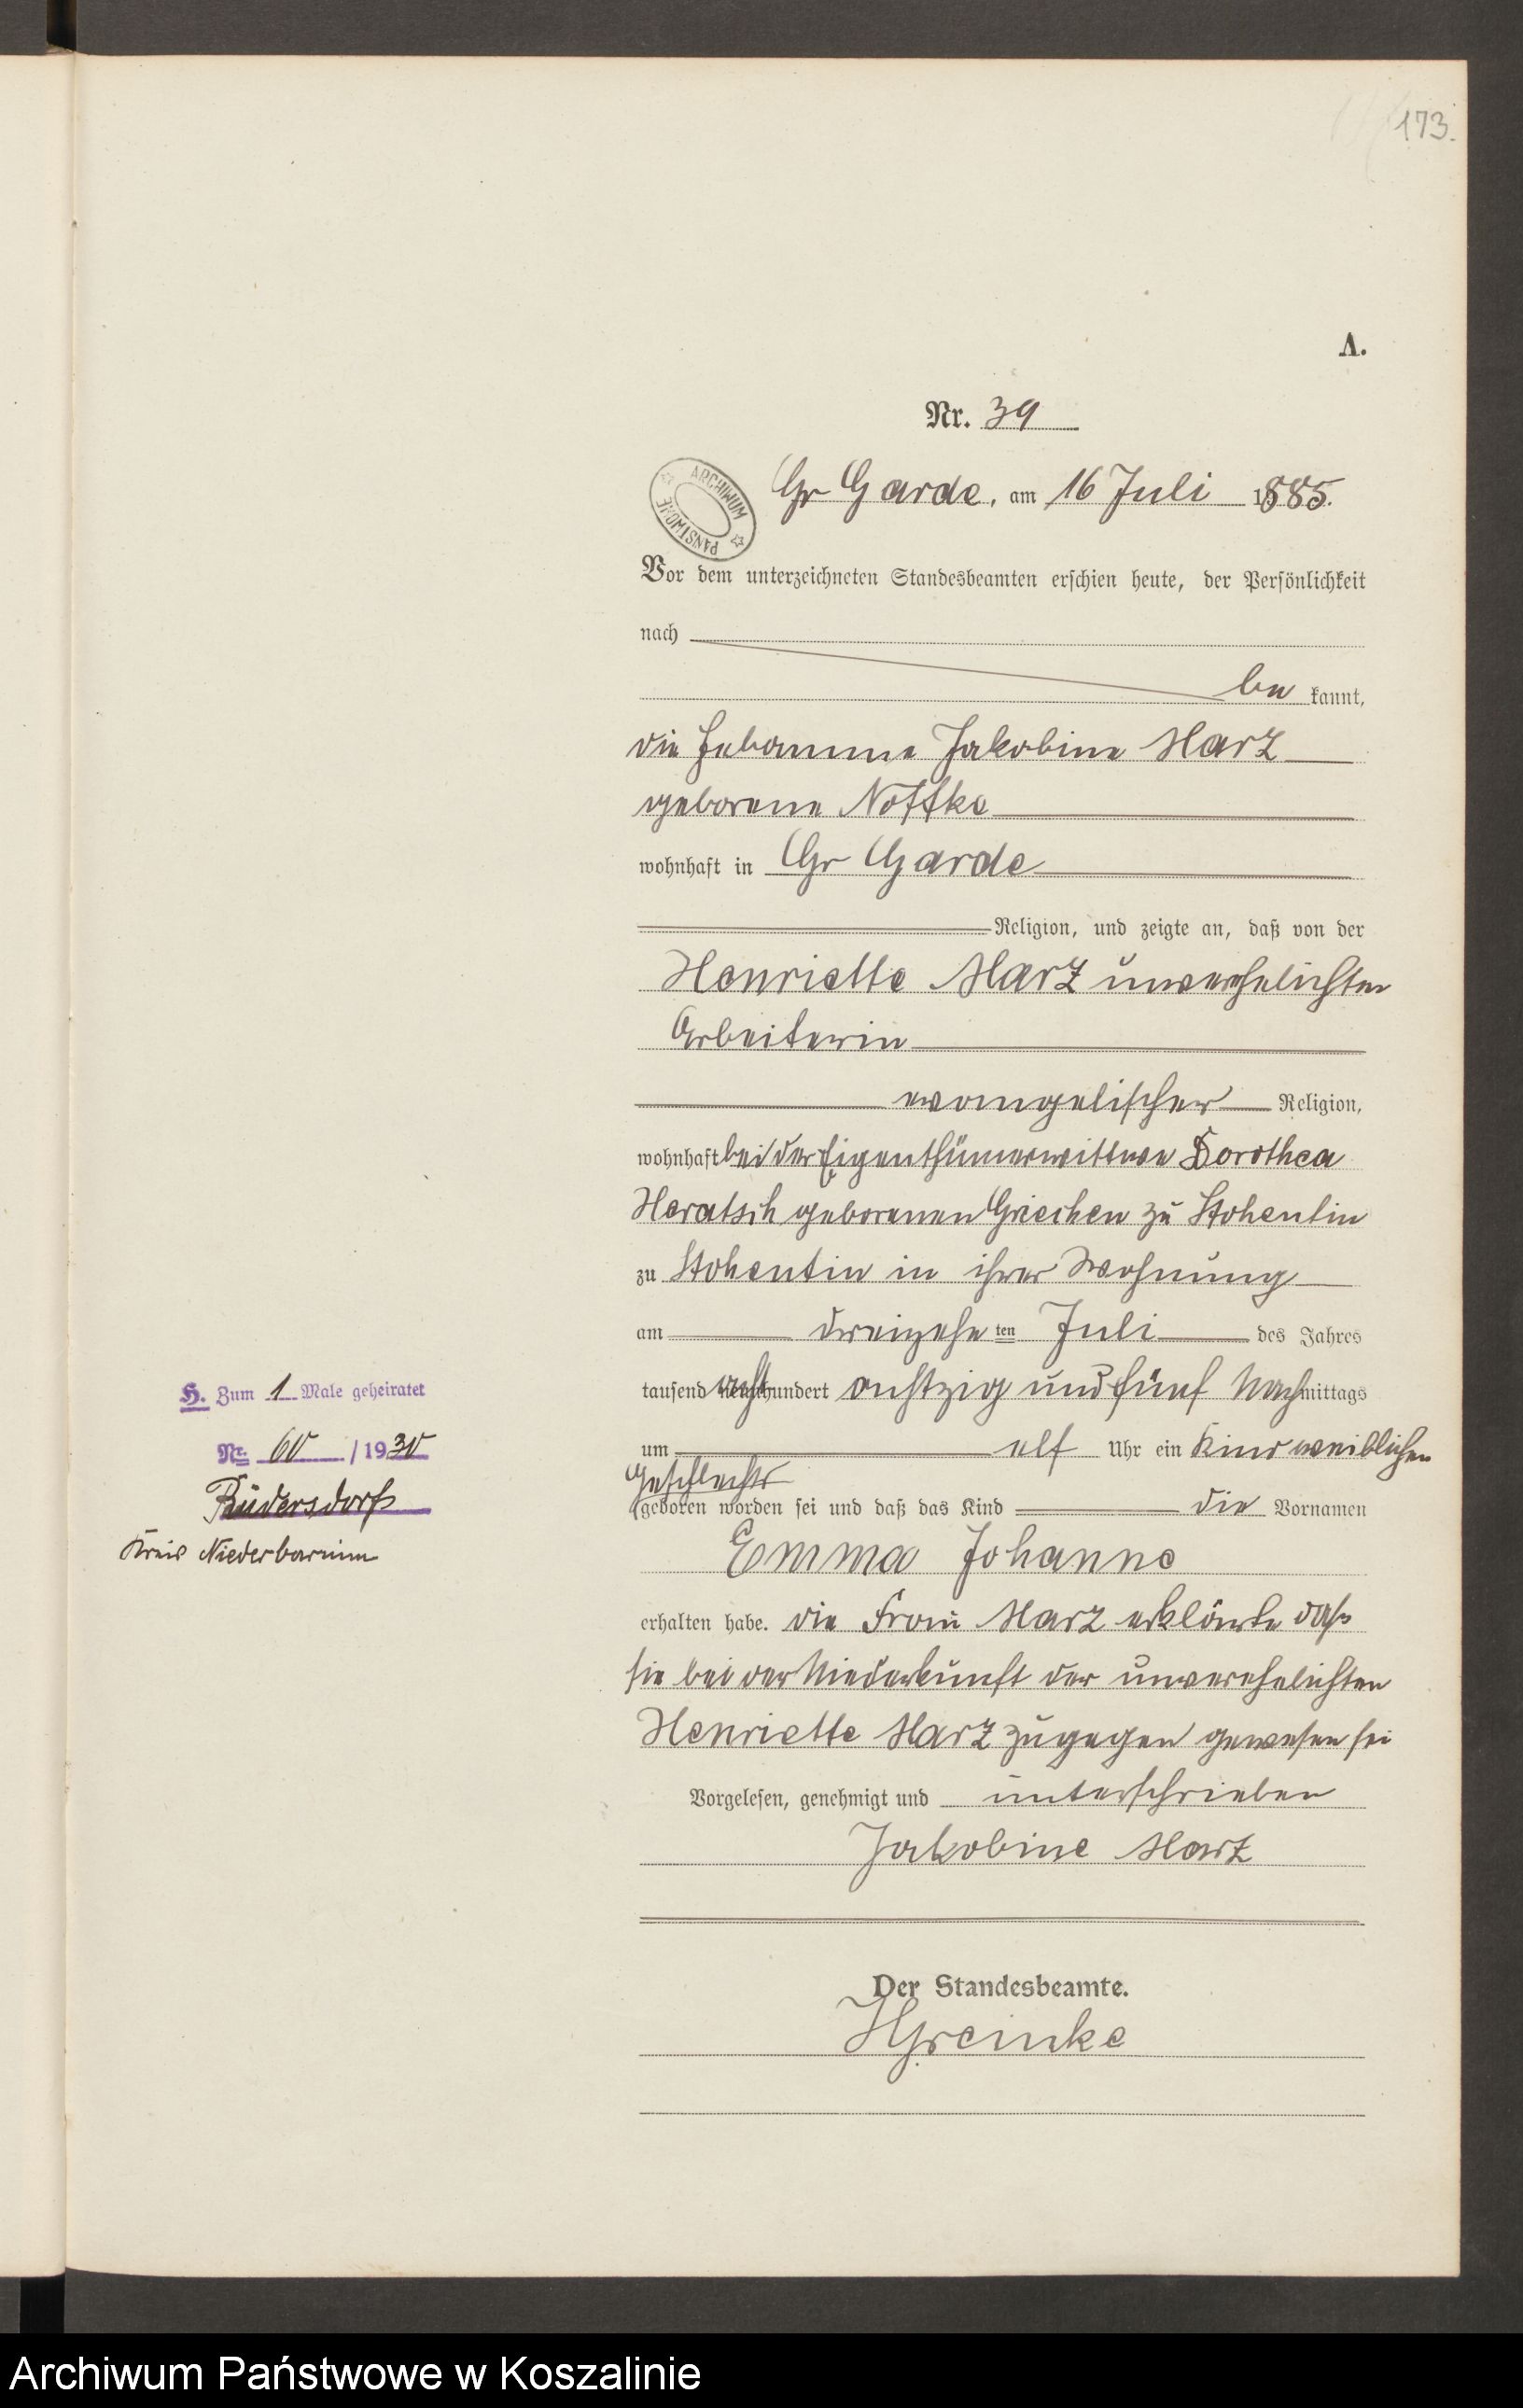 173.
A.
Nr. 39
ARCHIWUM PAŃSTWOWE
Gr Garde, am 16 Juli 1885.
Vor dem unterzeichneten Standesbeamten erschien heute, der Persönlichkeit
nach
be kannt,
die Hebamme Jakobine Marz
geborene Noffke
wohnhaft in Gr Garde
Religion, und zeigte an, daß von der
Henriette Marz unverehelichten
Arbeiterin
evangelischer Religion,
wohnhaft bei der Eigenthümerwittwe Dorothea
Heratsch geborenen Griechen zu Stohentin
zu Stohentin in ihrer Wohnung
am dreizehn ten Juli des Jahres
tausend acht hundert achtzig und fünf Nachmittags
um elf Uhr ein Kind weiblichen
Geschlechts
geboren worden sei und daß das Kind die Vornamen
Emma Johanne
erhalten habe. die Frau Marz erklärte daß
sie bei der Niederkunft der unverehelichten
Henriette Marz zugegen gewesen sei
Vorgelesen, genehmigt und unterschrieben
Jakobine Marz
Der Standesbeamte.
HGreinke
H. Zum 1 Male geheiratet
Nr. 60 / 1930
Rüdersdorf
Kreis Niederbarnim
Archiwum Państwowe w Koszalinie